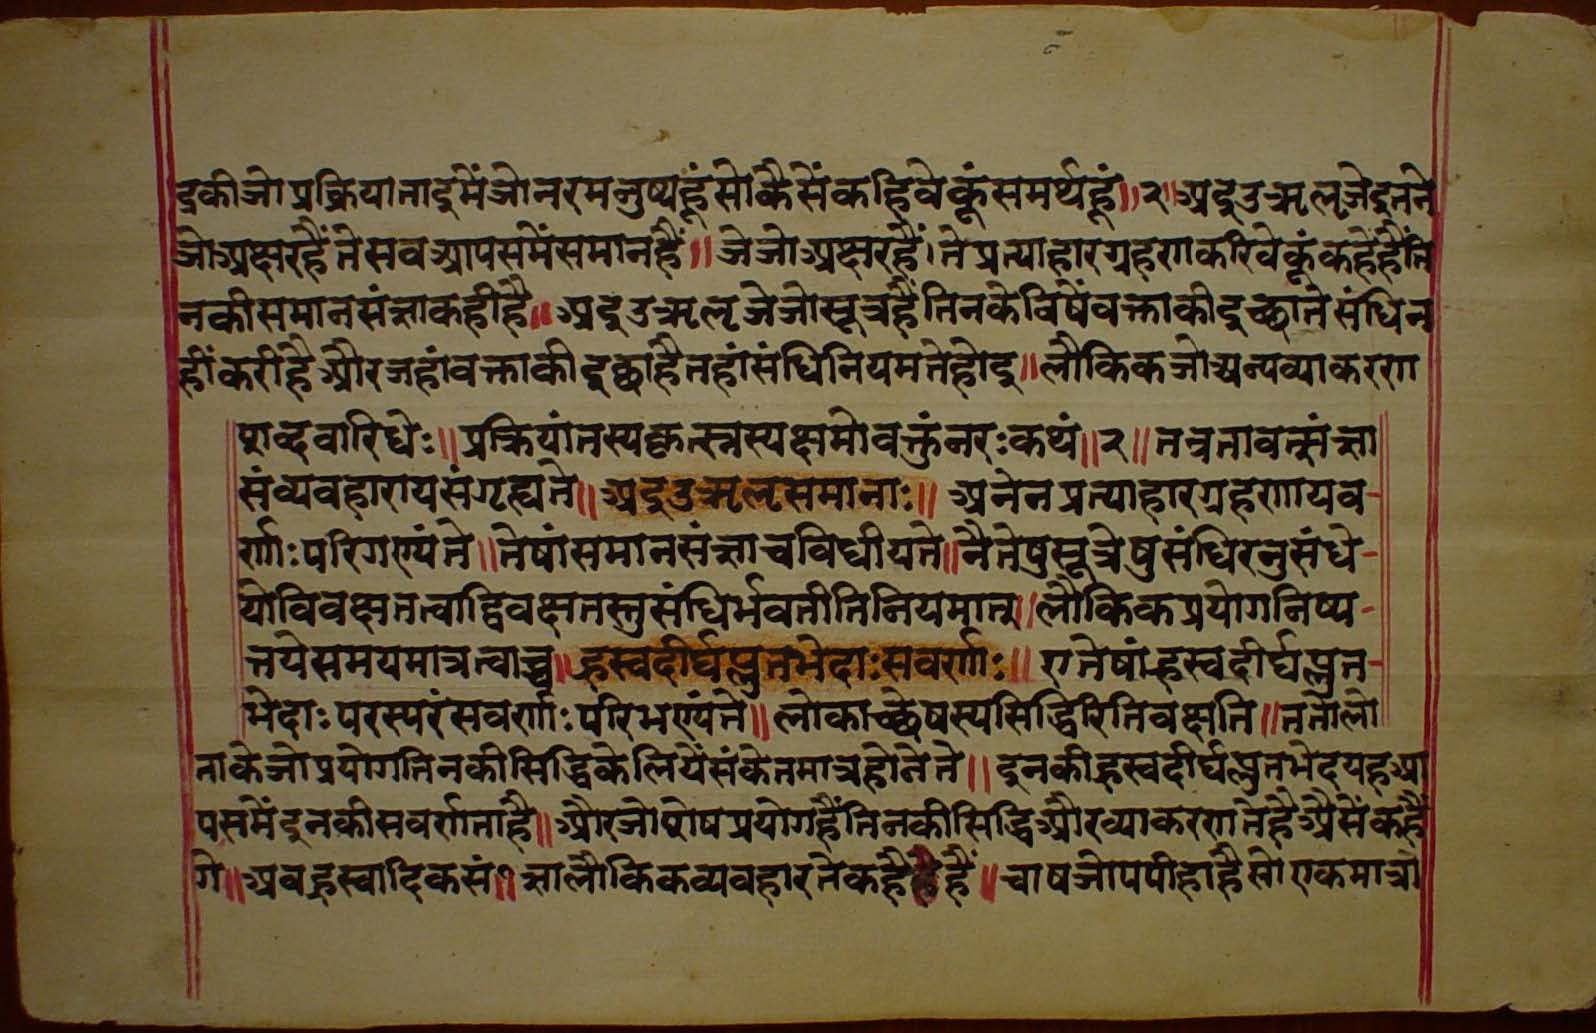 द्रकीजोप्रक्रियाताइमेंजोनरमनुष्यहूंसोकैसेंकहिवेकूंसमर्थहूं॥२॥अइउऋलृजेइनने
जोअक्षरहैंतेसवआपसमेंसमानहैं॥जेजोअक्षरहैं।तेप्रत्याहारग्रहणकरिवेकूंकहेंहैंति
नकीसमानसंज्ञाकहीहै॥अइउऋलृजेजोसूत्रहैंतिनकेविषेंवक्ताकीइच्छातेसंधिन
हींकरींहैऔरजहांवक्ताकीइच्छाहैतहांसंधिनियमतेहोइ॥लौकिकजोअन्यव्याकरण
शब्दवारिधेः॥प्रक्रियांतस्यकृत्स्नस्यक्षमोवक्तुंनरःकथं॥२॥तत्रतावत्संज्ञा
संव्यवहारायसंगृह्यते॥अइउऋलृसमानाः॥अनेनप्रत्याहारग्रहणायव-
र्णाःपरिगण्यंते॥तेषांसमानसंज्ञाचविधीयते॥नैतेषुसूत्रेषुसंधिरनुसंधे-
योविवक्षतत्वाद्विवक्षतस्तुसंधिर्भवतीतिनियमात्॥लौकिकप्रयोगनिष्प-
त्तयेसमयमात्रत्वाच्च॥ह्रस्वदीर्घप्लुतभेदाःसवर्णाः॥एतेषांह्रस्वदीर्घप्लुत-
भेदाःपरस्परंसवर्णाःपरिभण्यंते॥लोकाच्छेषस्यसिद्धिरितिवक्षति॥ततोलो
ताकेजोप्रयोगतिनकीसिद्धिकेलियेंसंकेतमात्रहोतेते॥इनकीह्रस्वदीर्घप्लुतभेदयहआ
पसमेंइनकीसवर्णताहै॥औरजोशेषप्रयोगहैंतिनकीसिद्धिऔरव्याकरणतेहैऐसेंकहैं
गे॥अवह्रस्वादिकसं॥ज्ञालौकिकव्यवहारतेकहैहैं॥चाषजोपपीहाहैसोएकमात्रा